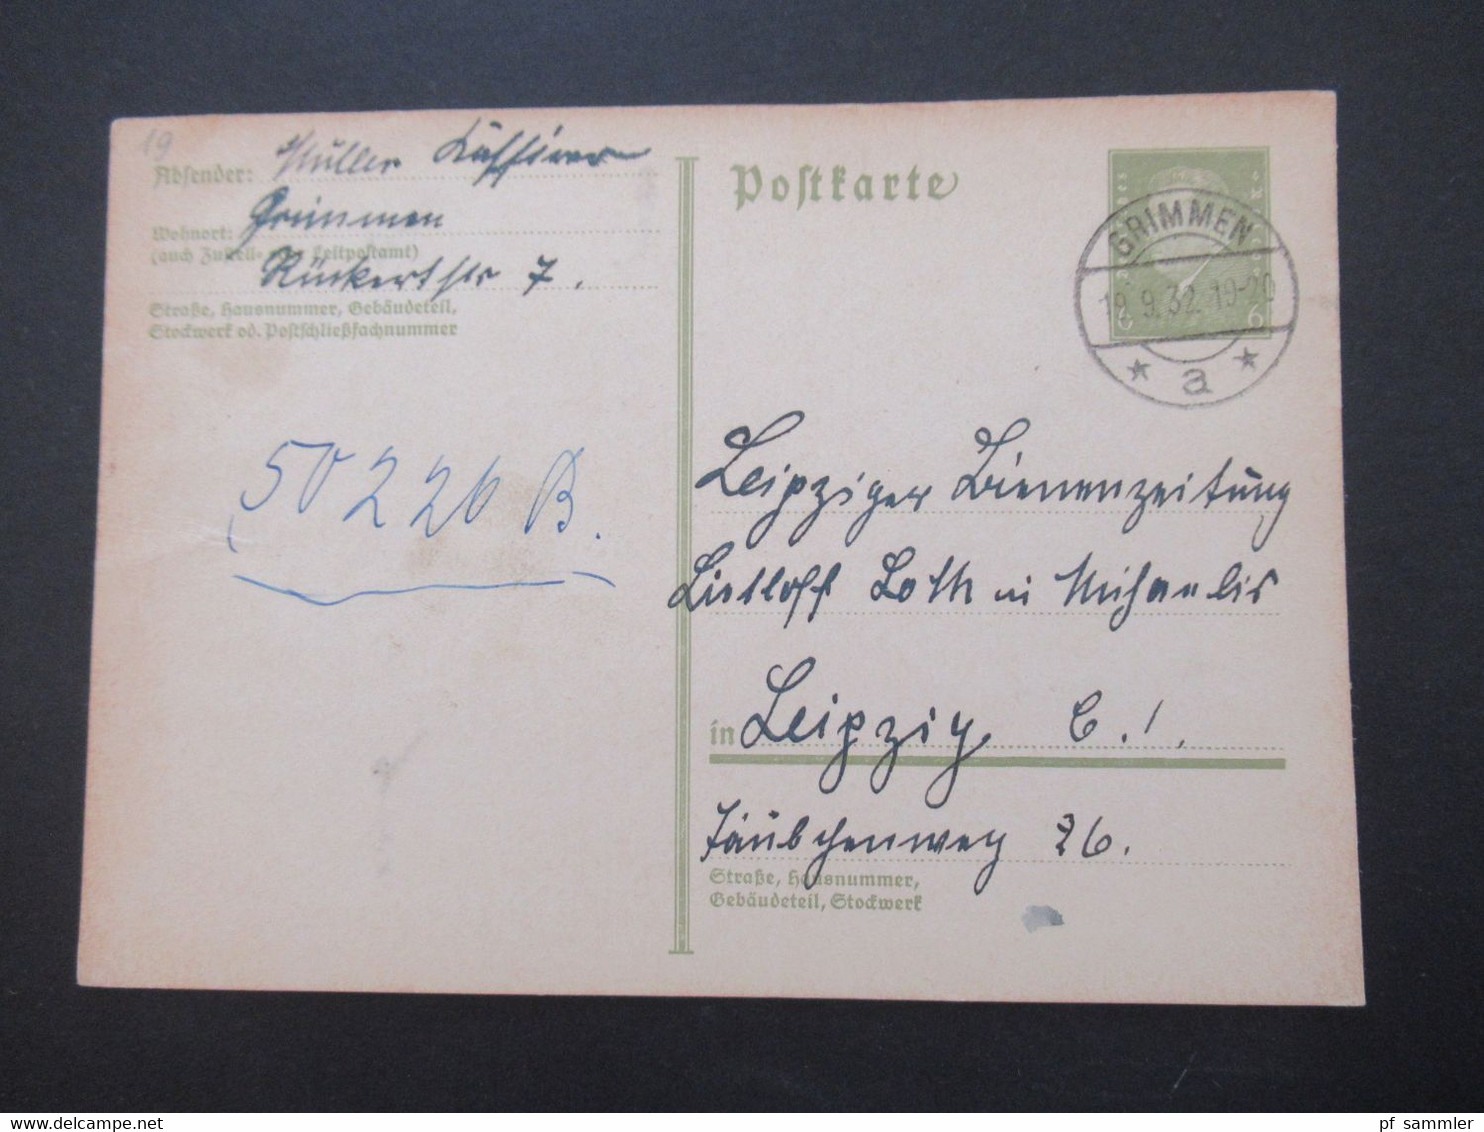 19
Absender: Müller Kassierer
Wohnort: Grimmen
(auch Zustell- oder Leitpostamt)
Rückertstr 7.
Straße, Hausnummer, Gebäudeteil,
Stockwerk od. Postschließfachnummer
50226 B.
Postkarte
GRIMMEN
19.9.32.19-20
6 6
* a *
Leipziger Bienenzeitung
Liedloff Loth in Michaelis
in Leipzig C.1.
Täubchenweg 26.
Straße, Hausnummer,
Gebäudeteil, Stockwerk
pf sammler
delcampe.net